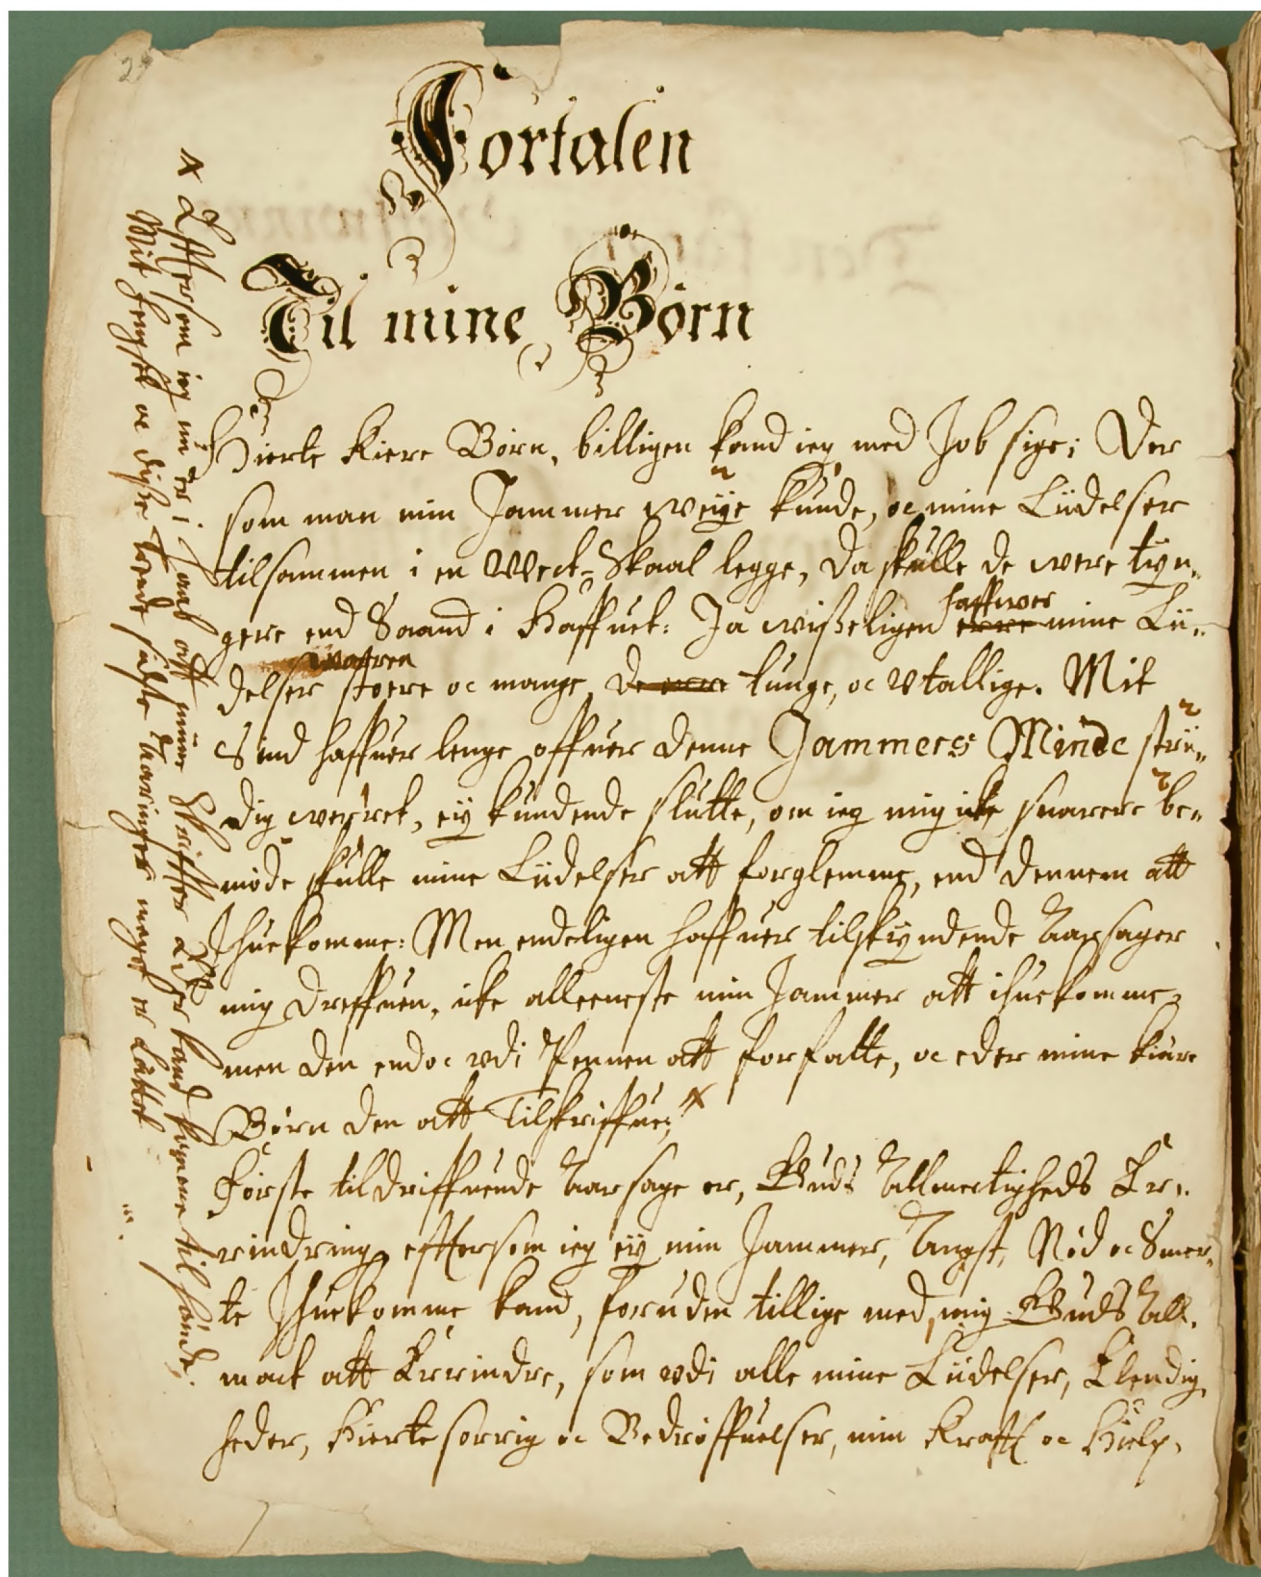 Fortalen
Til mine Børn
Hierte Kiere Børn, billigen kand ieg med Job sige; Der
som man min Jammer weÿe kunde, oc mine Lüdelser
tilsammen i en Weck-Skaal legge, Da skulle de were tÿn-
haffwer
gere end Saand i Haffuet: Ja wißeligen erre mine Lii-
waaren
delser stoere oc mange, De ere tunge, oc Vtallige. Mit
Sind haffuer lenge offuer denne Jammers Minde strii-
dig werret, eÿ kundende slutte, om ieg mig icke snarere be-
møde skulle mine Liidelser att forglemme, end Dennem att
Ihuekomme: Men endeligen haffuer tilskÿndende Aarsager
mig Dreffuen, icke alleeneste min Jammer att ihuekomme,
men den endoc vdi Pennen att forfatte, oc eder mine kiære
Børn den att Tilskriffue;
Første tildriffuende Aarsage er, Guds Allmectigheds Er-
rindring, efftersom ieg eÿ min Jammer, Angst, Nød oc Smer-
te Ihuekomme kand, foruden tillige med mig Guds All-
mact att Errindre, som vdi alle mine Liidelser, Elendig-
heder, Hierte sorrig oc Bedrøffuelser, min Krafft oc Hielp,
Effttersom ieg nu er i Haab att mine Skriffter Eder kand komme til hände.
Mit fengsel oc disse tvende sidste Aaringer noget er Lættet